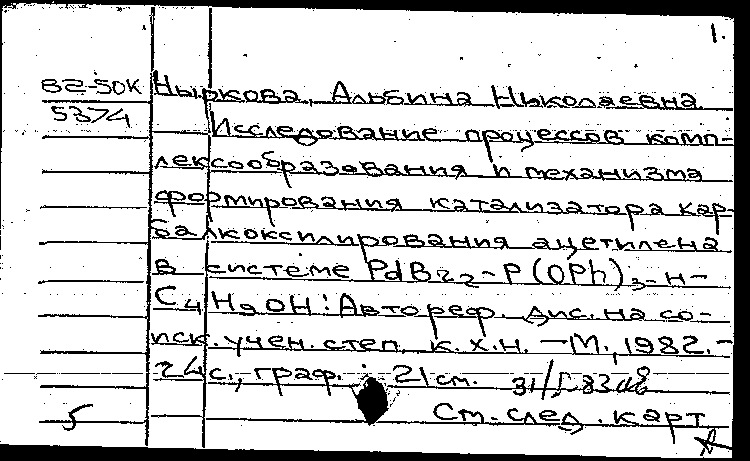 1.
82-50К Ныркова, Альбина Николаевна
5374 Исследование процессов комп-
лексообразования и механизма
формирования катализатора кар-
балкоксилирования ацетилена
в системе PdBr2-P(OPh)3-н-
C4H9OH: Автореф. дис. на со-
иск. учен. степ. к.х.н. - М., 1982. -
24 с., граф. ; 21 см.
5 См. след. карт.